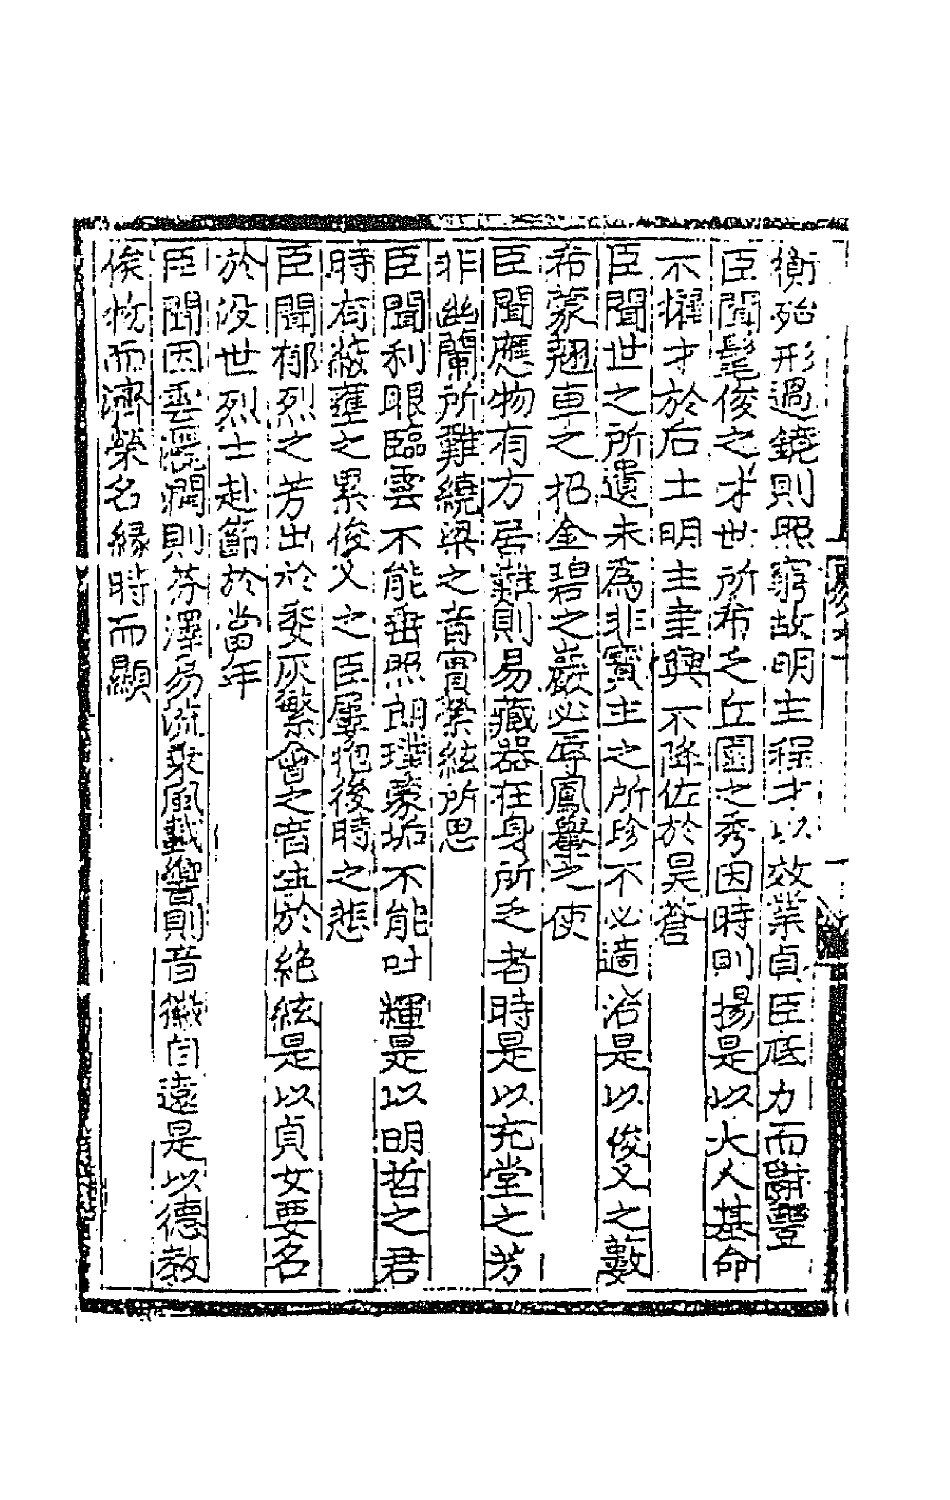 衡殆形過鏡則照窮故明主程才以效業貞臣底力而辭豐
臣聞髦俊之才世所希乏丘園之秀因時則揚是以大人基命
不擢才於后土明主聿興不降佐於昊蒼
臣聞世之所遺未為非寶主之所珍不必適治是以俊乂之藪
希蒙翹車之招金碧之巖必辱鳳舉之使
臣聞應物有方居難則易藏器在身所乏者時是以充堂之芳
非幽蘭所難繞梁之音實縈絃所思
臣聞利眼臨雲不能垂照朗璞蒙垢不能吐輝是以明哲之君
時有蔽壅之累俊乂之臣屢抱後時之悲
臣聞郁烈之芳出於委灰繁會之音生於絕絃是以貞女要名
於沒世烈士赴節於當年
臣聞因雲灑潤則芬澤易流乘風載響則音徽自遠是以德教
俟物而濟榮名緣時而顯